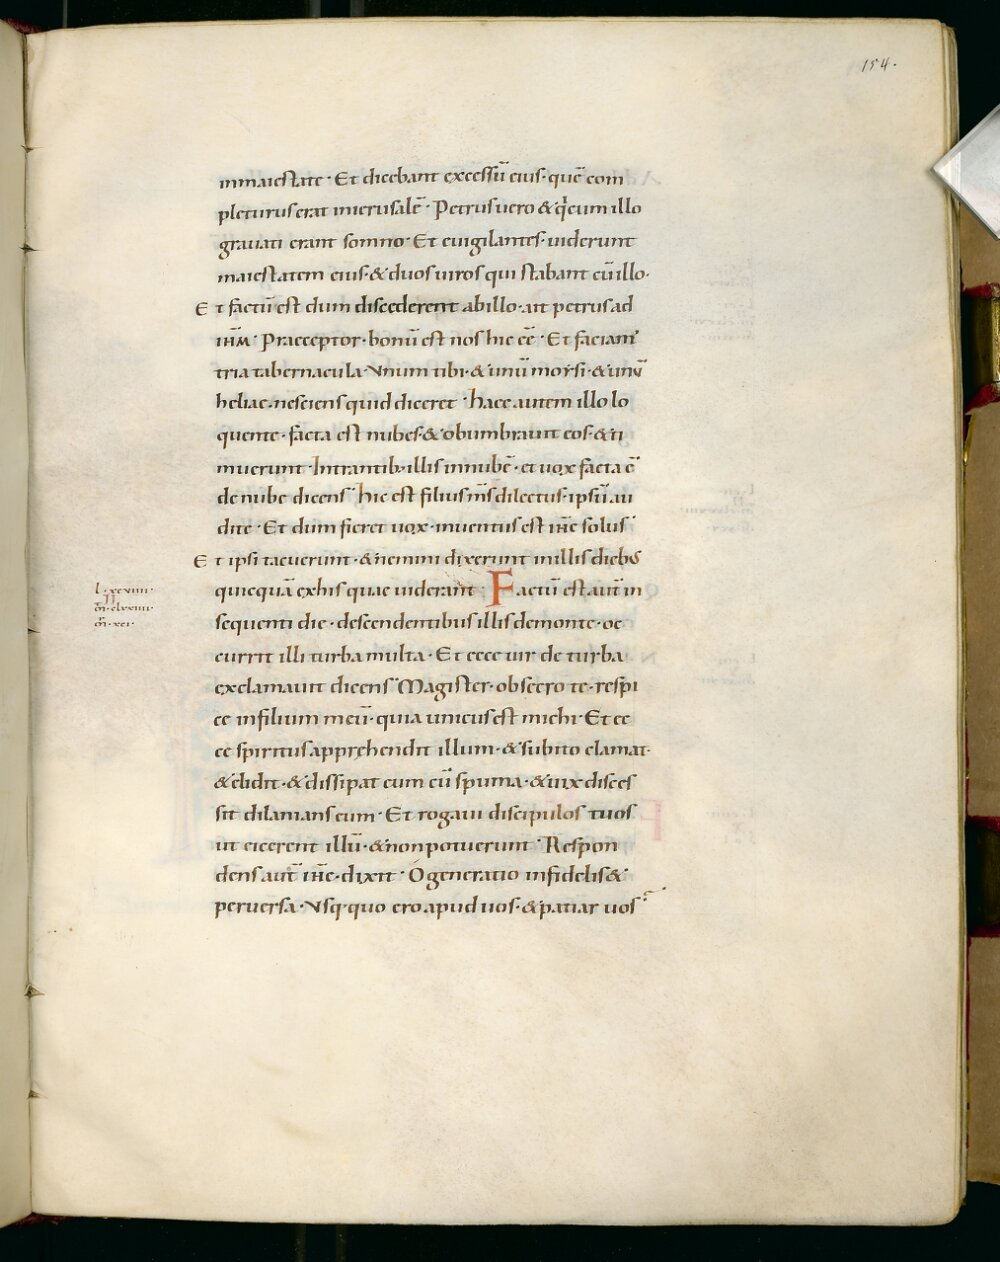 154.
inmaiestate · Et dicebant excessū eius · quē com
pleturus erat inierusalē · Petrus uero & q̇ cum illo
grauati erant somno · Et euigilantes · uiderunt
maiestatem eius · & duos uiros qui stabant cū illo ·
Et factū est dum discederent ab illo · ait petrus ad
ihm̄ · Praeceptor · bonū est nos hic eē · Et faciam'
tria tabernacula · Vnum tibi · & unū moysi · & unū
heliae · nesciens quid diceret · haec autem illo lo
quente · facta est nubes · & obumbrauit eos · & ti
muerunt · Intrantib; illis in nubē · et uox facta ē
de nube dicens · hic est filius m̄s dilectus · ipsū au
dite · Et dum fieret uox · inuentus est ih̄c solus ·
Et ipsi tacuerunt · & nemini dixerunt in illis dieb;
quicquā ex his quae uiderant · Factū est aut̄ in
l · xcviiii ·
II
m̄ · clxxiiii ·
m̄ · xci ·
sequenti die · descendentibus illis de monte · oc
currit illi turba multa · Et ecce uir de turba
exclamauit dicens · Magister · obsecro te · respi
ce in filium meū · quia unicus est michi · Et ec
ce spiritus apprehendit illum · & subito clamat ·
& elidit · & dissipat eum cū spuma · & uix disces
sit dilanians eum · Et rogaui discipulos tuos
ut eicerent illū · & non potuerunt · Respon
dens aut̄ ih̄c · dixit · O generatio infidelis &
peruersa · Vsq · quo ero apud uos · & patiar uos